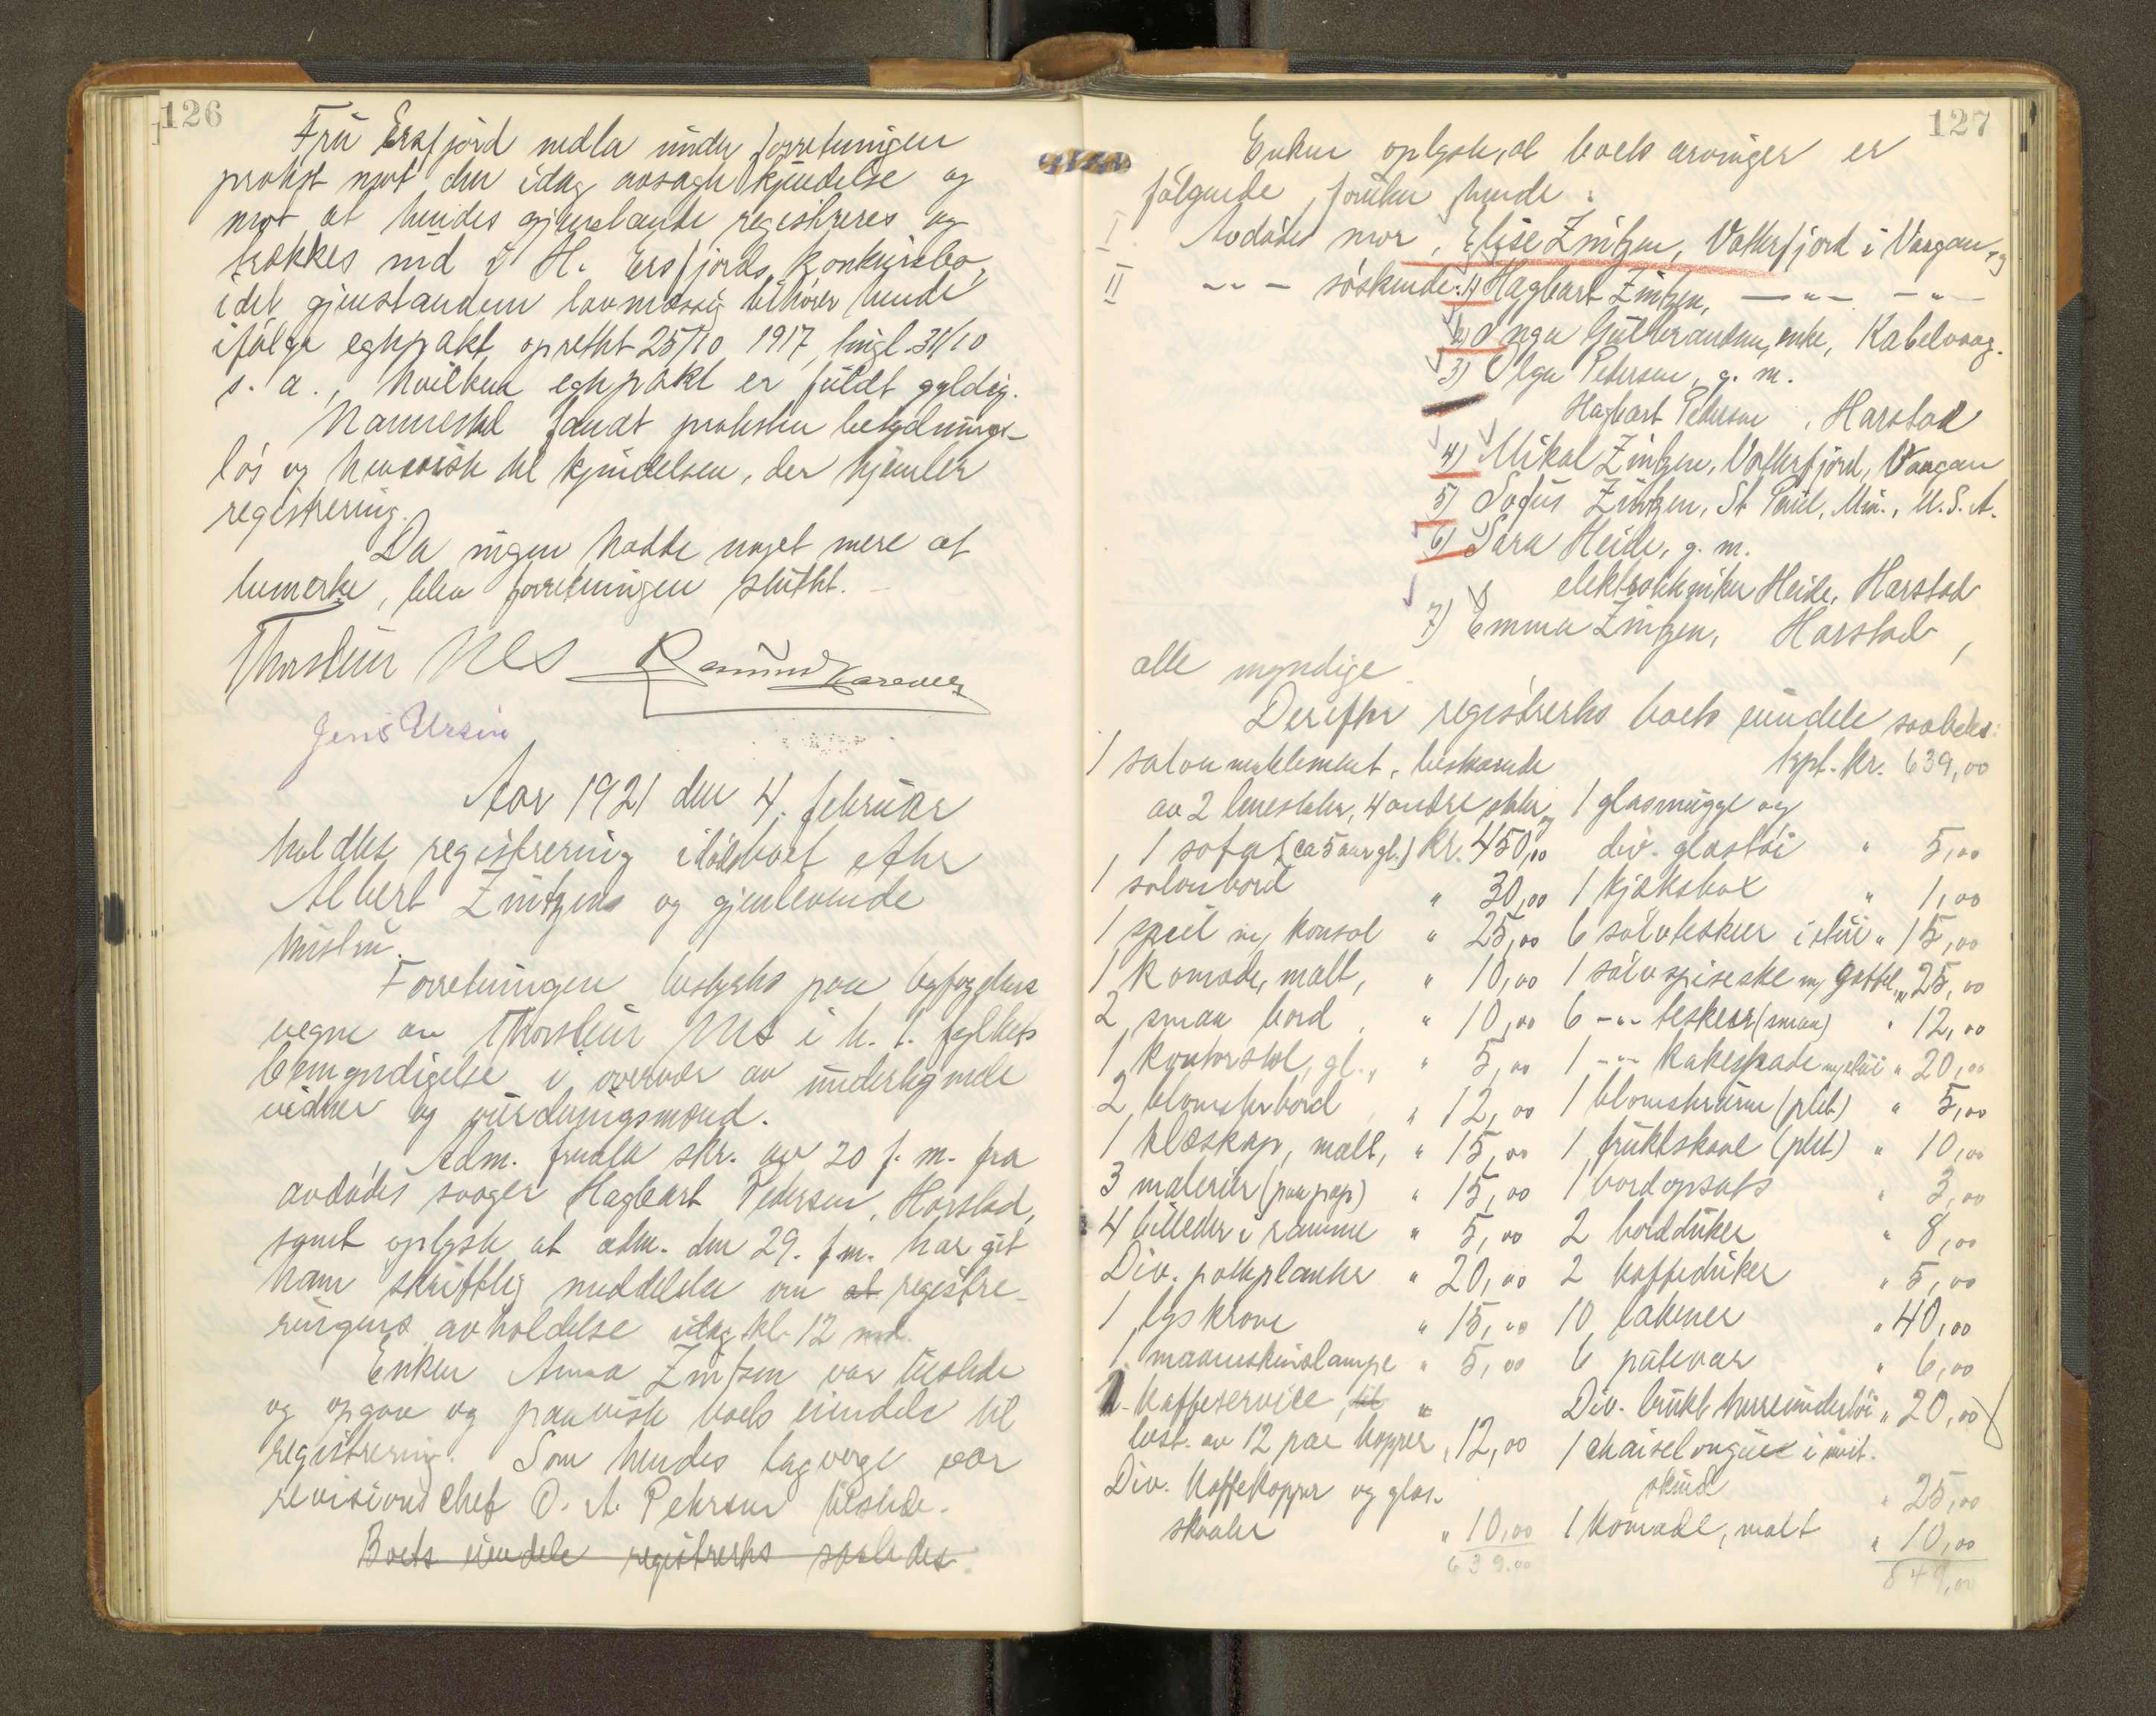 126
Fru Ersfjord nedla under forretningen
protest mot den idag avsagte kjendelse og
mot at hendes gjenstande registreres og
trækkes ind i H. Ersfjords konkursbo,
idet gjenstandene lovmæssig tilhører hende
ifølge egtepakt, oprettet 25/10 1917, tingl. 31/10
s. a., hvilken egtepakt er fuldt gyldig.
Namnsmd fandt protesten betydnings-
løs og henviste til kjendelsen, der hjemler
registrering.
Da ingen hadde noget mere at
bemerke, blev forretningen sluttet. -
Thorstein Nes
Jens Ursin
Aar 1921 den 4. februar
holdtes registrering i dødsboet efter
Albert Zintzens og gjenlevende
hustru.
Forretningen bestyrtes paa byfogdens
vegne av Thorstein Nes i h. t. fylkets
bemyndigelse i overvær av undertegnede
vidner og vurderingsmænd.
Adm. fremla skr. av 20 f. m. fra
avdødes svoger Hagbart Pedersen, Harstad,
samt oplyste at adm. den 29. f. m. har git
ham skriftlig meddelelse om at registre-
ringens avholdelse idag kl. 12 md.
Enken Anna Zintzen var tilstede
og opgav og paaviste boets eiendele til
registrering. Som hendes lagverge var
revisionschef O. A. Petersen tilstede.
Boets eiendele registrertes saaledes
127
Enken oplyste, at boets arvinger er
følgende, foruten hende:
I. Avdødes mor, Elise Zintzen, Vatterfjord i Vaagan, og
II -"- søskende: 1) Hagbart Zintzen, -"- -"-
2) Inga Guttormsen, enke, Kabelvaag.
3) Olga Pedersen, g. m.
Hagbart Pedersen, Harstad
4) Mikal Zintzen, Vatterfjord, Vaagan
5) Sofus Zintzen, St. Paul, Min., U.S.A.
6) Sara Heide, g. m.
elektrotekniker Heide, Harstad
7) Emma Zintzen, Harstad,
alle myndige.
Derefter registrertes boets eiendele saaledes:
1 salonmøblement, bestaaende
av 2 lenestoler, 4 andre stoler,
1 sofa (ca 5 aar gl.) kr. 450,00
1 salonbord " 30,00
1 speil m/ konsol " 25,00
1 komode, malt, " 10,00
2 smaa bord " 10,00
1 kontorstol, gl., " 5,00
2 blomsterbord " 12,00
1 klæskap, malt, " 15,00
3 malerier (paa pap) " 15,00
4 billeder i ramme " 5,00
Div. potteplanter " 20,00
1 lyskrone " 15,00
1 maaneskinslampe " 5,00
1 kaffeservice,
best. av 12 par kopper " 12,00
Div. kaffekopper og glas-
skaaler " 10,00
639.00
Trpt. kr. 639,00
1 glasmugge og
div. glastøi " 5,00
1 kjæksbox " 1,00
6 sølvteskeer i etui " 15,00
1 sølvspiseske m/ gaffel " 25,00
6 -"- teskeer (smaa) " 12,00
1 -"- kakespade m/ etui " 20,00
1 blomsterurne (plet) " 5,00
1 fruktskaal (plet) " 10,00
1 bordopsats " 3,00
2 bordduker " 8,00
2 kaffeduker " 5,00
10 lakener " 40,00
6 putevar " 6,00
Div. brukt herreundertøi " 20,00
1 chaiselongue i imit.
skind " 25,00
1 komode, malt " 10,00
849,00